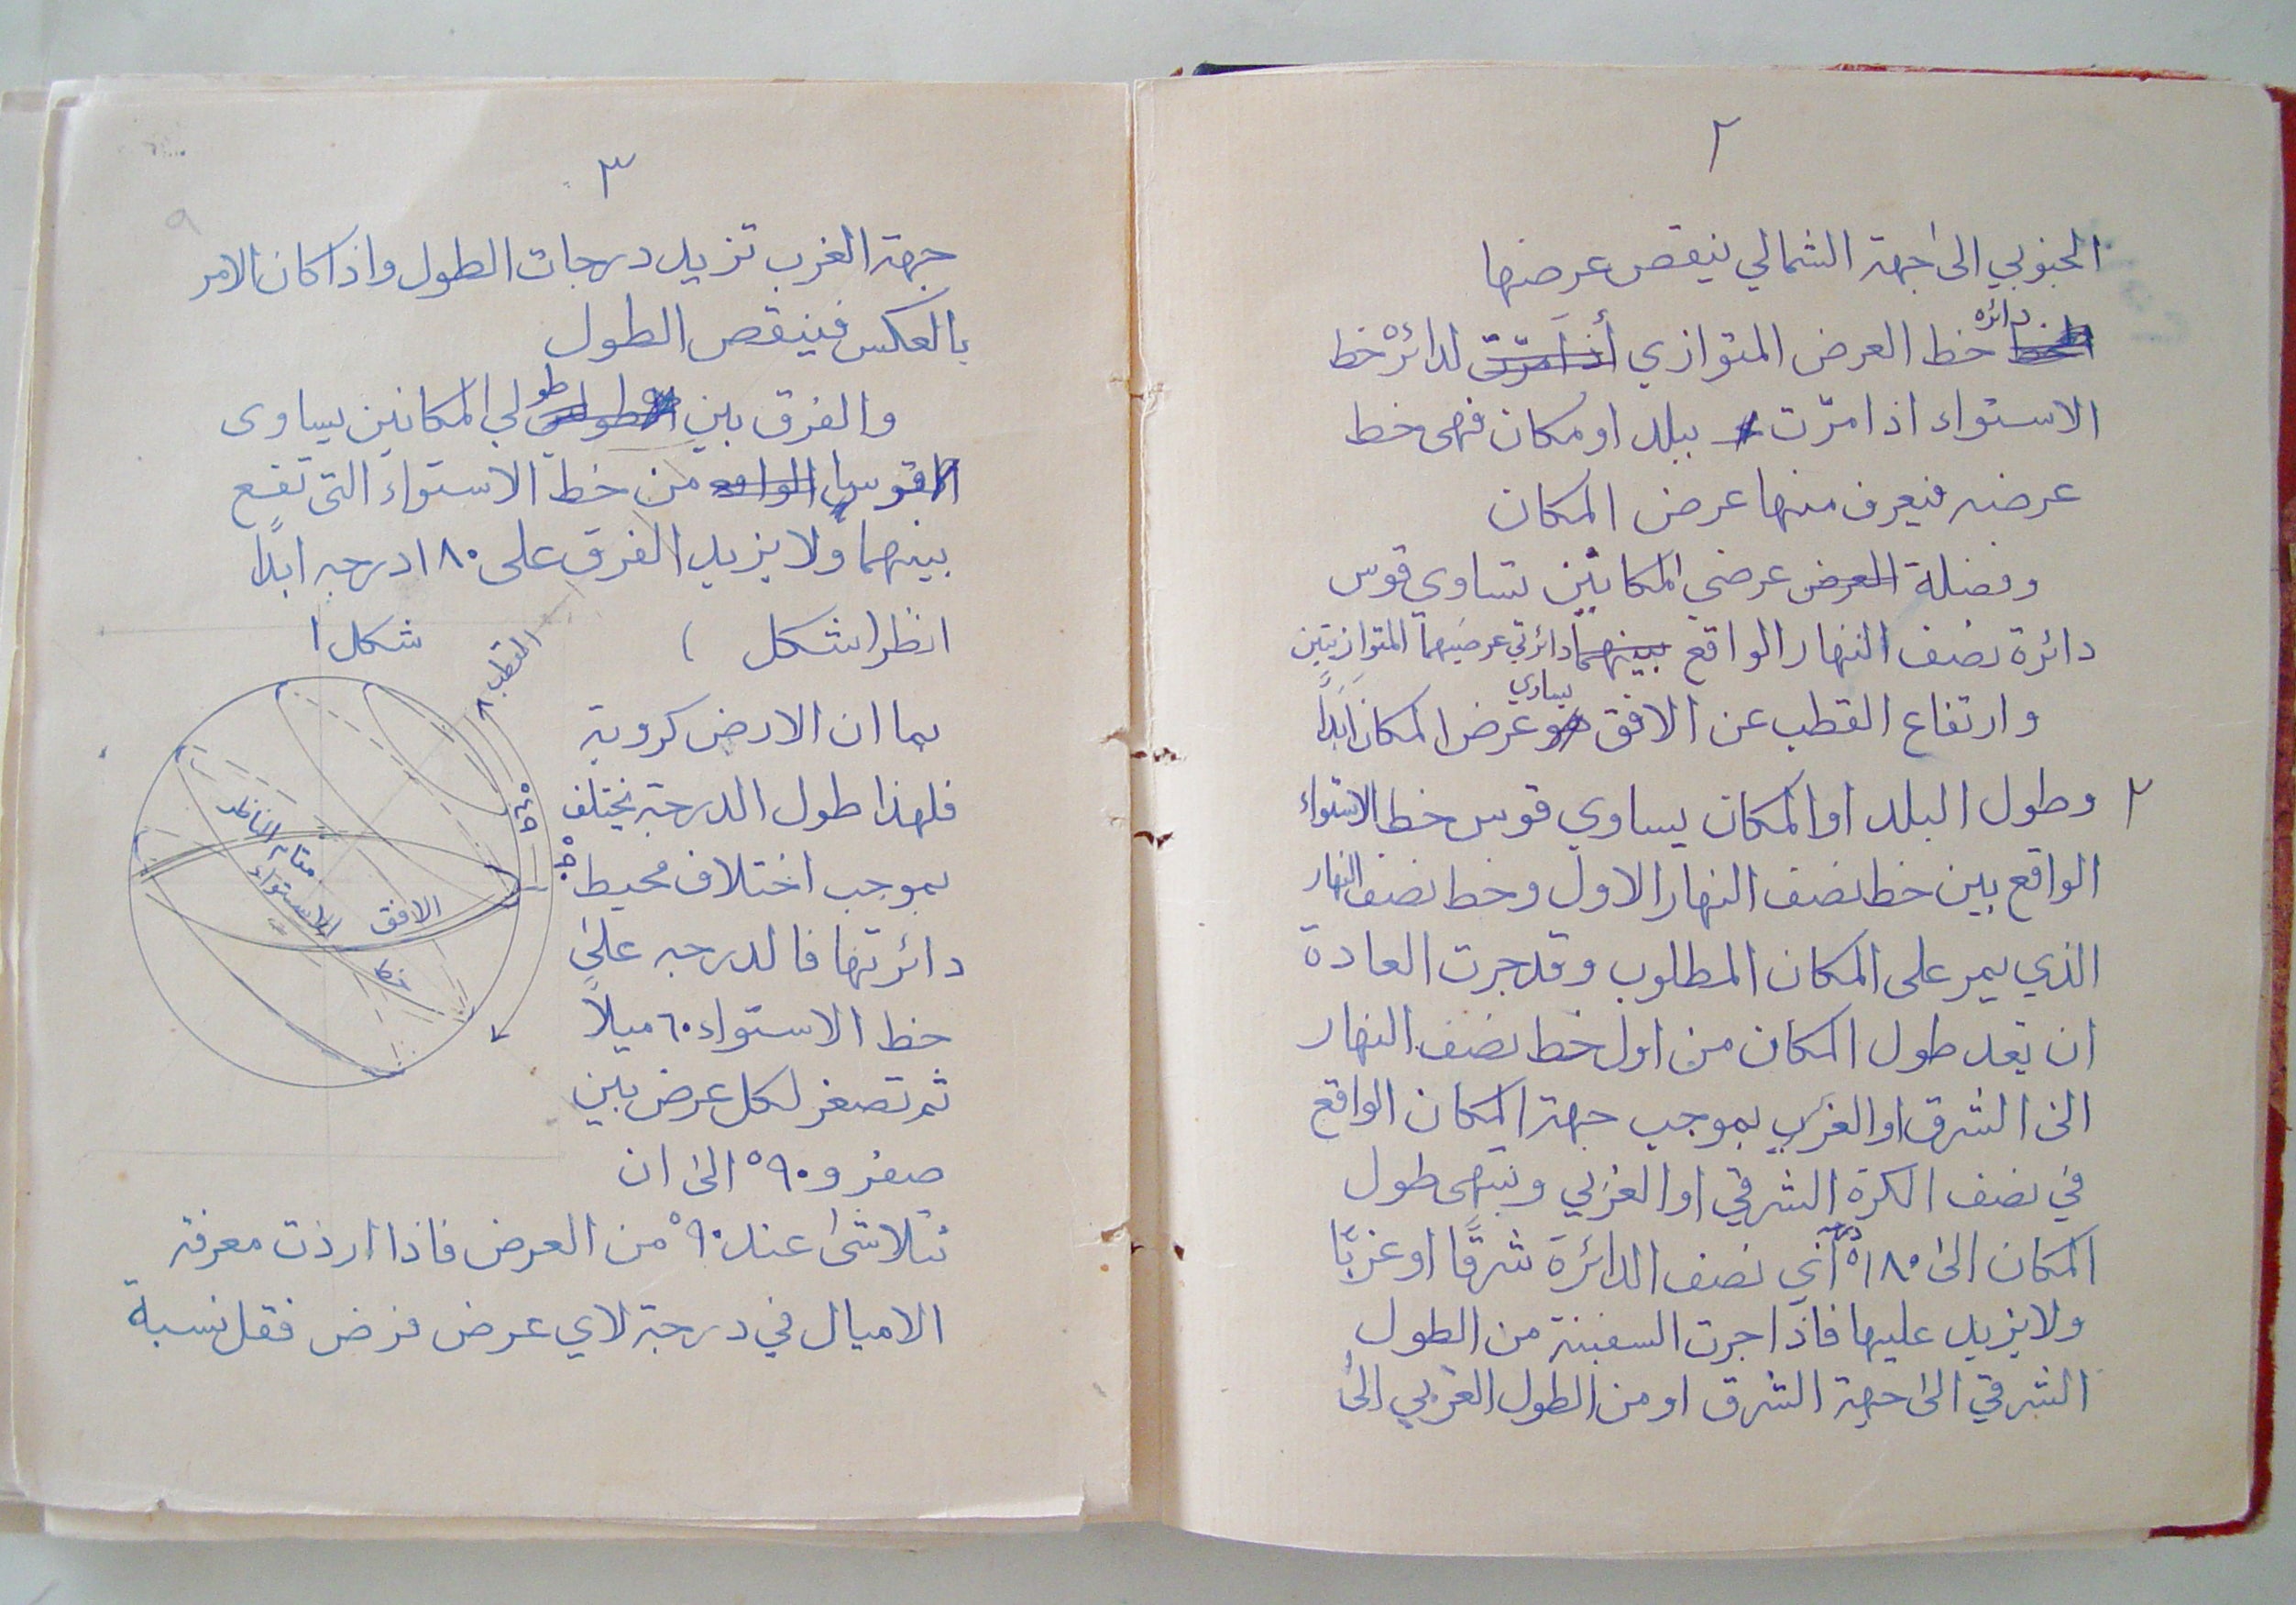 ٢
الجنوبي الى جهة الشمالي ينقص عرضها
دائرة خط العرض المتوازي لدائرة خط
الاستواء اذا مرّت ببلد او مكان فهى خط
عرضه فيعرف منها عرض المكان
وفضلة العرض عرضي المكانين تساوي قوس
دائرة نصف النهار الواقع بينهما دائرتي عرضيهما المتوازيتين
وارتفاع القطب عن الافق يساوي عرض المكان ابدًا
٢ وطول البلد او المكان يساوي قوس خط الاستواء
الواقع بين خط نصف النهار الاول وخط نصف النهار
الذي يمر على المكان المطلوب وقد جرت العادة
ان يعد طول المكان من اول خط نصف النهار
الى الشرق او الغرب بموجب جهة المكان الواقع
في نصف الكرة الشرقي او الغربي وينتهى طول
المكان الى ١٨٠° أي نصف الدائرة شرقًا او غربًا
ولا يزيد عليها فاذا جرت السفينة من الطول
الشرقي الى جهة الشرق او من الطول الغربي الى
٣
جهة الغرب تزيد درجات الطول واذا كان الامر
بالعكس فينقص الطول
والفرق بين طولي المكانين يساوى
قوس الواقع من خط الاستواء التى تقع
بينهما ولا يزيد الفرق على ١٨٠ درجه ابدًا
انظر (شكل )
شكل ١
القطب
الافق
الاستواء
بما ان الارض كروية
فلهذا طول الدرجة يختلف
بموجب اختلاف محيط
دائرتها فالدرجه على
خط الاستواء ٦٠ ميلاً
ثم تصغر لكل عرض بين
صفر و ٩٠° الى ان
تتلاشى عند ٩٠° من العرض فاذا اردت معرفة
الاميال في درجة لاي عرض فرض فقل نسبة